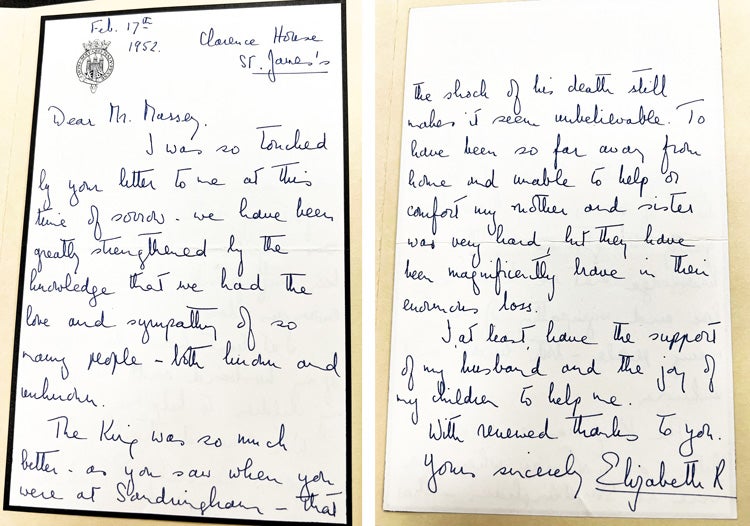 Feb. 17th
1952.
Clarence House
St. James's
Dear Mr. Massey.
I was so touched
by your letter to me at this
time of sorrow - we have been
greatly strengthened by the
knowledge that we had the
love and sympathy of so
many people - both known and
unknown.
The King was so much
better - as you saw when you
were at Sandringham - that
the shock of his death still
makes it seem unbelievable. To
have been so far away from
home and unable to help or
comfort my mother and sister
was very hard, but they have
been magnificently brave in their
enormous loss.
I, at least, have the support
of my husband and the joy of
my children to help me.
With renewed thanks to you.
Yours sincerely Elizabeth R